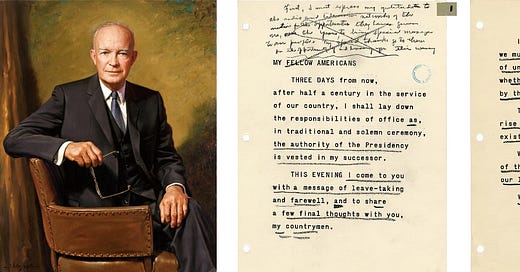 First, I must express my gratitude to
the radio and television networks
opportunities they have given
me over the years to bring special messages
to our people. My special thanks go to them
for the opportunity of this evening
MY FELLOW AMERICANS
THREE DAYS from now,
after half a century in the service
of our country, I shall lay down
the responsibilities of office as,
in traditional and solemn ceremony,
the authority of the Presidency
is vested in my successor.
THIS EVENING I come to you
with a message of leave-taking
and farewell, and to share
a few final thoughts with you,
my countrymen.
1
we mu
of un
wheth
by th
rise
exist
of th
our l
W